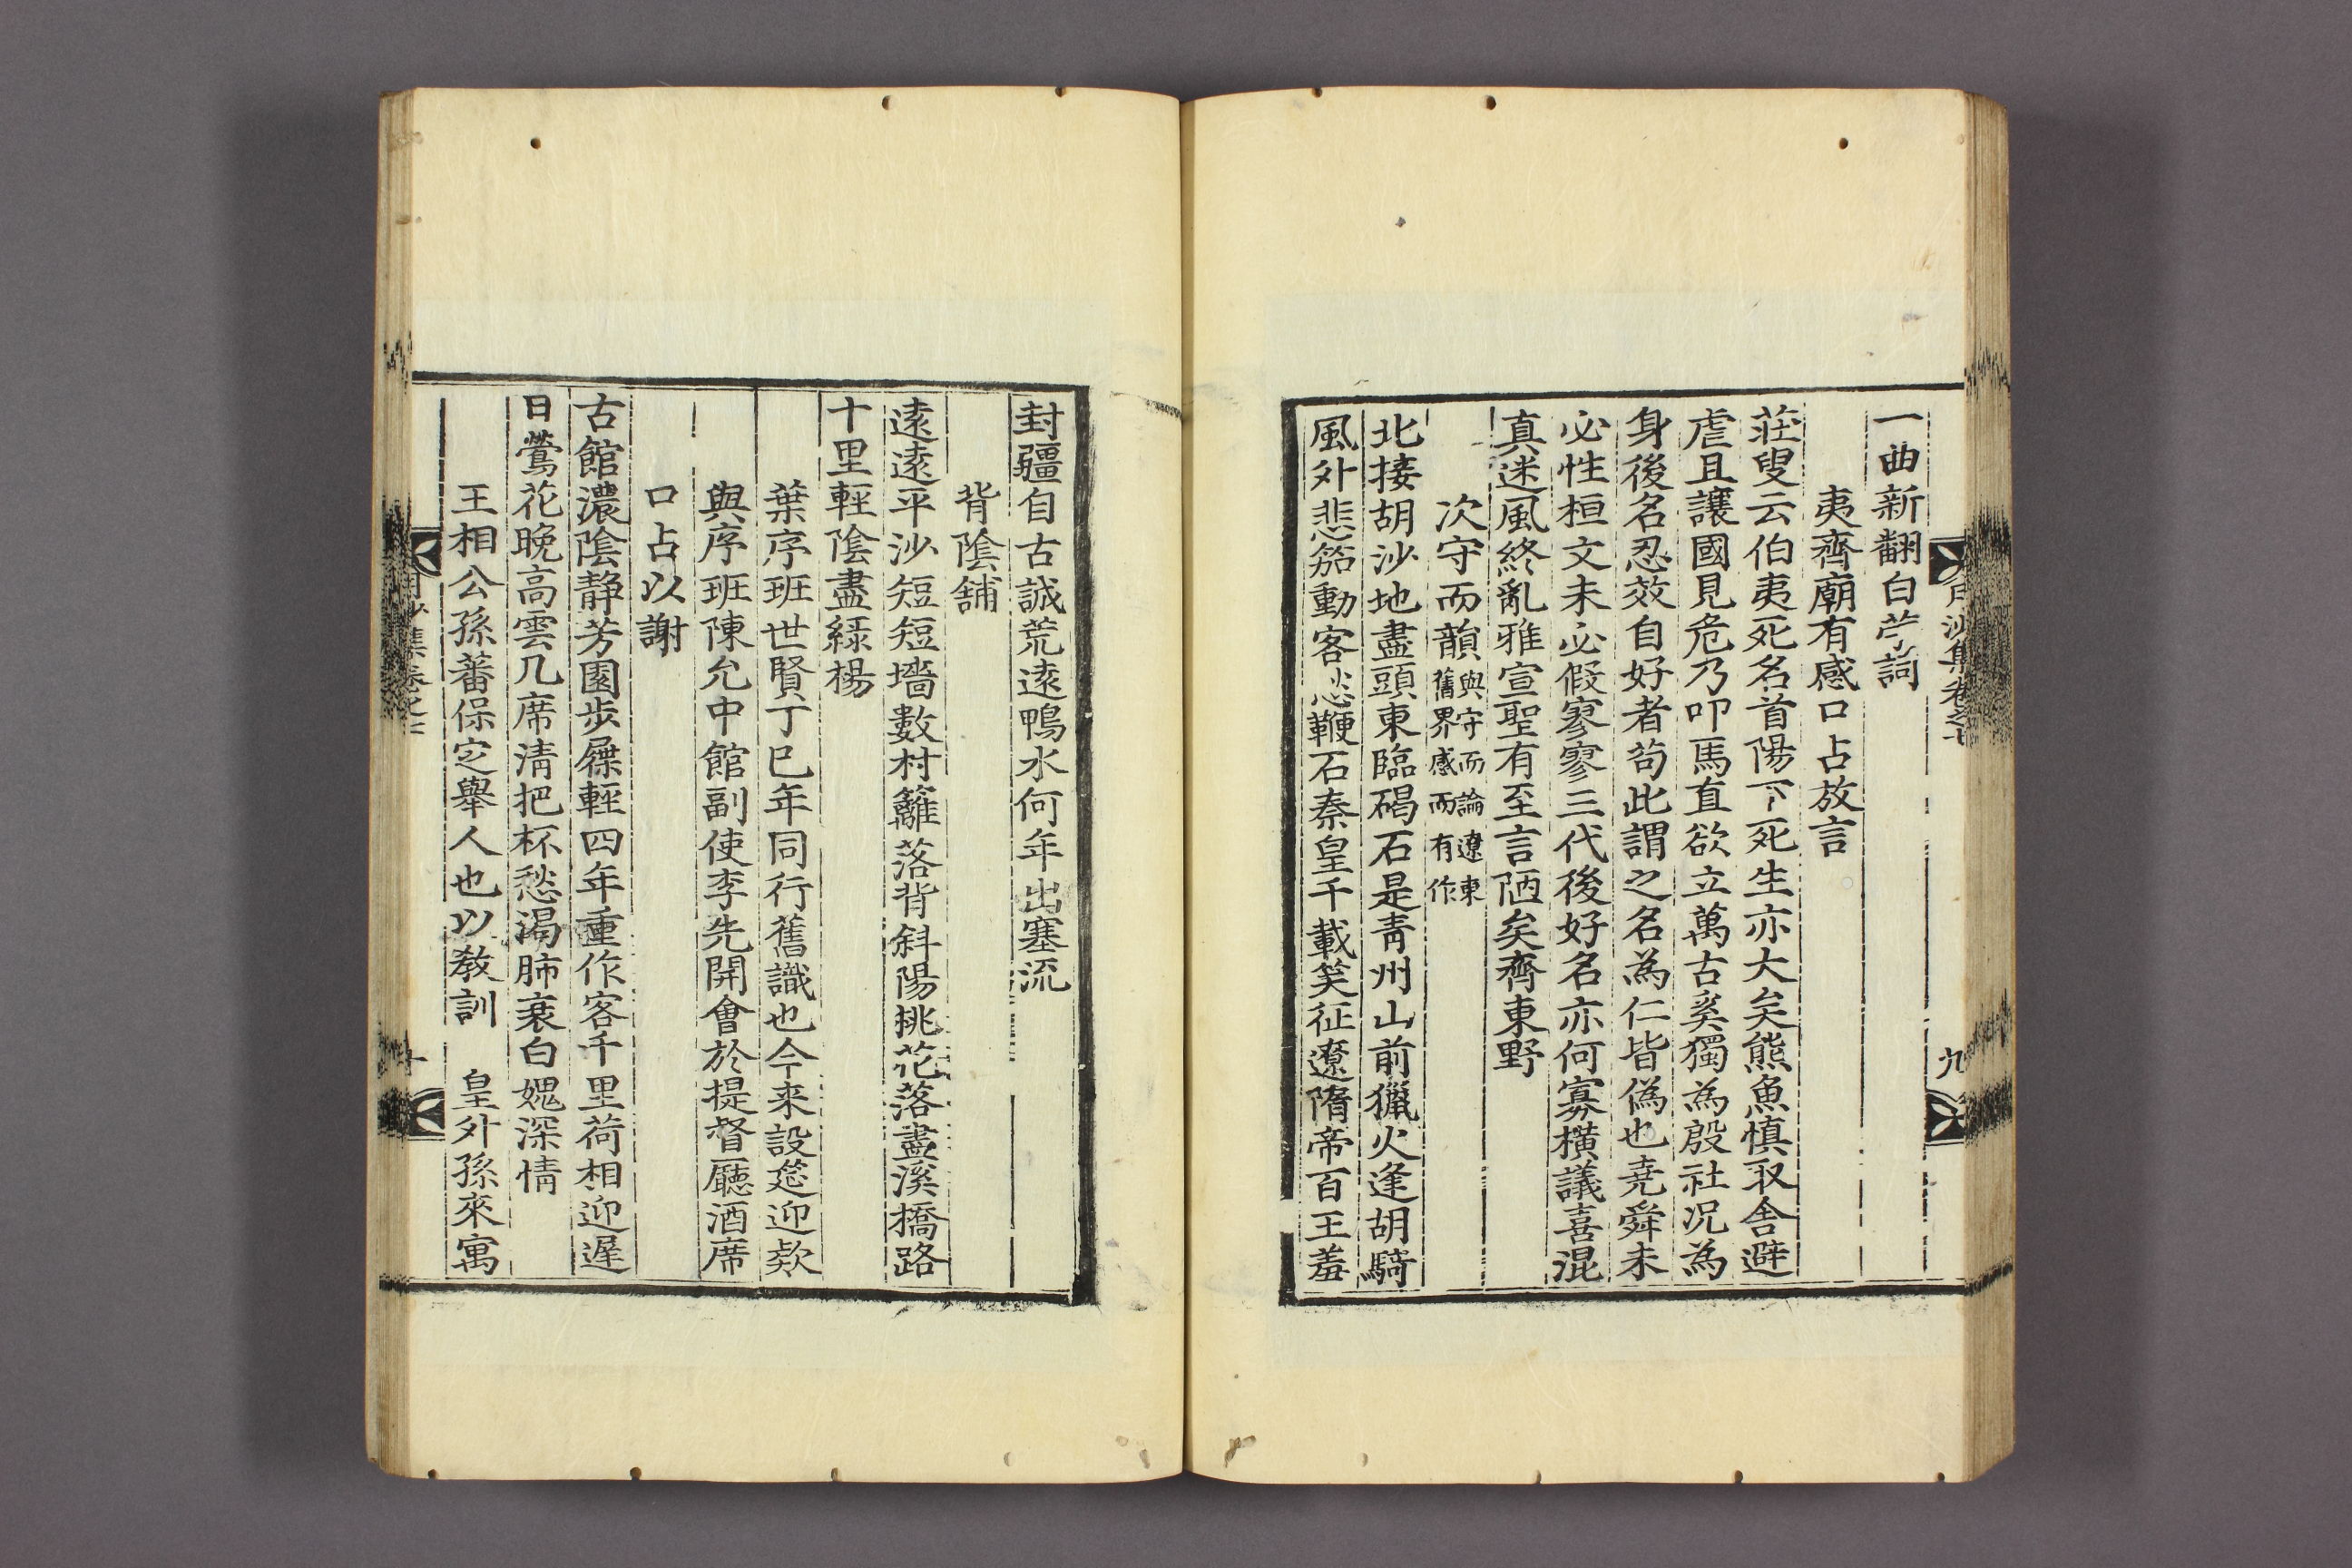 一曲新翻白苧詞
夷齊廟有感口占放言
莊叟云伯夷死名首陽下死生亦大矣熊魚慎取舍避
虐且讓國見危乃叩馬直欲立萬古奚獨為殷社况為
身後名忍效自好者苟此謂之名為仁皆偽也堯舜未
必性桓文未必假寥寥三代後好名亦何寡橫議喜混
真迷風終亂雅宣聖有至言陋矣齊東野
次守而韻與守而論遼東
舊界感而有作
北接胡沙地盡頭東臨碣石是靑州山前獵火逢胡騎
風外悲笳動客愁鞭石秦皇千載笑征遼隋帝百王羞
月沙集卷之七
九
封疆自古誠荒遠鴨水何年出塞流
背陰舖
遠遠平沙短短墻數村籬落背斜陽挑花落盡溪橋路
十里輕陰盡綠楊
葉序班世賢丁巳年同行舊識也今来設筵迎欵
與序班陳允中館副使李先開會於提督廳酒席
口占以謝
古館濃陰静芳園步屧輕四年重作客千里荷相迎遅
日鶯花晚高雲几席淸把杯愁渴肺衰白媿深情
王相公孫蕃保定舉人也以敎訓　皇外孫來寓
月沙集卷之七
十